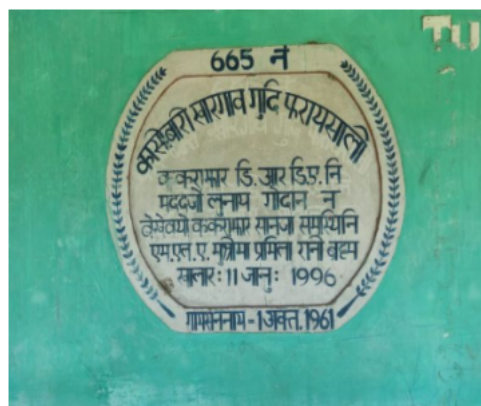 TU
665 नं
कासेबारी सारगाव गुदि फरायसाली
ककराझार डि. आर डि.ए. नि
मददजों लुनाय गोदान न
बेखेवयो ककराझार सानजा समथियनि
एम.एल.ए. मुत्रीमा प्रमिला रानी ब्रह्म
खालार: 11 जानु: 1996
गायसननाय - 1 अक्त. 1961